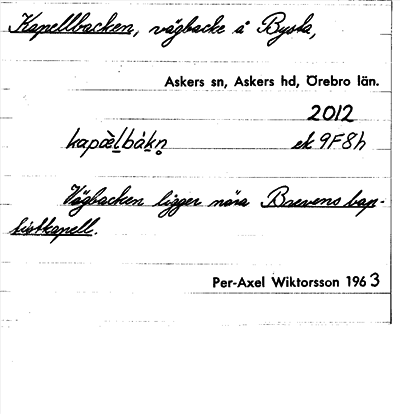 Kapellbacken, vägbacke å Bysta,
Askers sn, Askers hd, Örebro län.
2012
kapæ̀l̲bák̲n̥ ek 9F8h
Vägbacken ligger nära Brevens bap-
tistkapell.
Per-Axel Wiktorsson 1963